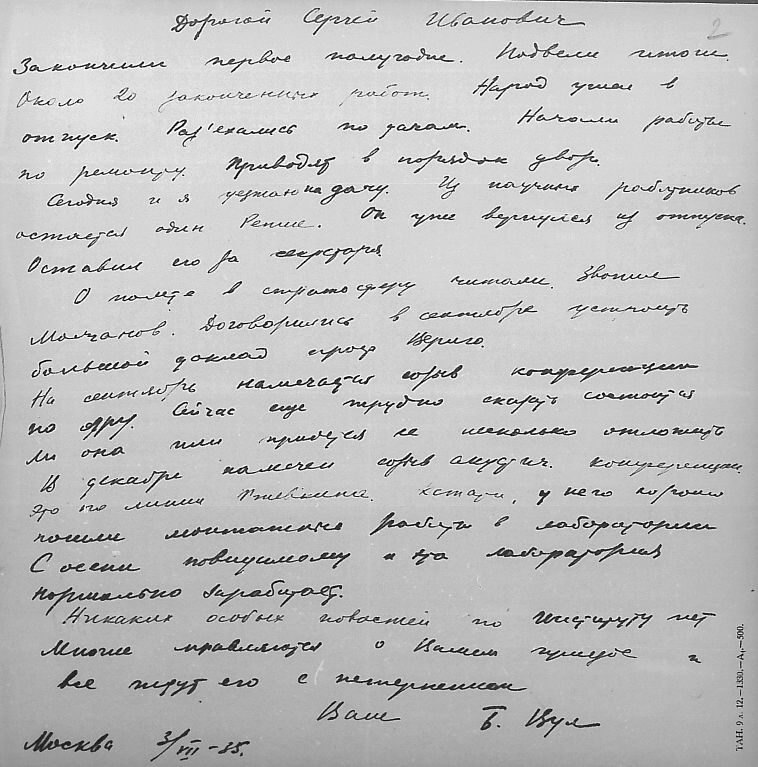 2
Дорогой Сергей Иванович
Закончили первое полугодие. Подвели итоги.
Около 20 законченных работ. Народ ушел в
отпуск. Раз'ехались по дачам. Начали работы
по ремонту. Приводят в порядок двор.
Сегодня и я уезжаю на дачу. Из научных работников
остается один Репше. Он уже вернулся из отпуска.
Оставил его за секретаря.
О полете в стратосферу читали. Звонил
Молчанов. Договорились в сентябре устроить
большой доклад проф Вериго.
На сентябрь намечается созыв конференции
по ядру. Сейчас еще трудно сказать состоится
ли она или придется ее несколько отложить
В декабре намечен созыв акустич. конференции.
Это по линии Ржевкина. Кстати, у него хорошо
пошли монтажные работы в лаборатории
С осени повидимому и эта лаборатория
нормально заработает.
Никаких особых новостей по Институту нет
Многие справляются о Вашем приезде и
все ждут его с нетерпением
Ваш Б. Вул
Москва 3/VII-35.
ТАН. 9 л. 12.—1330.—А₅.—500.